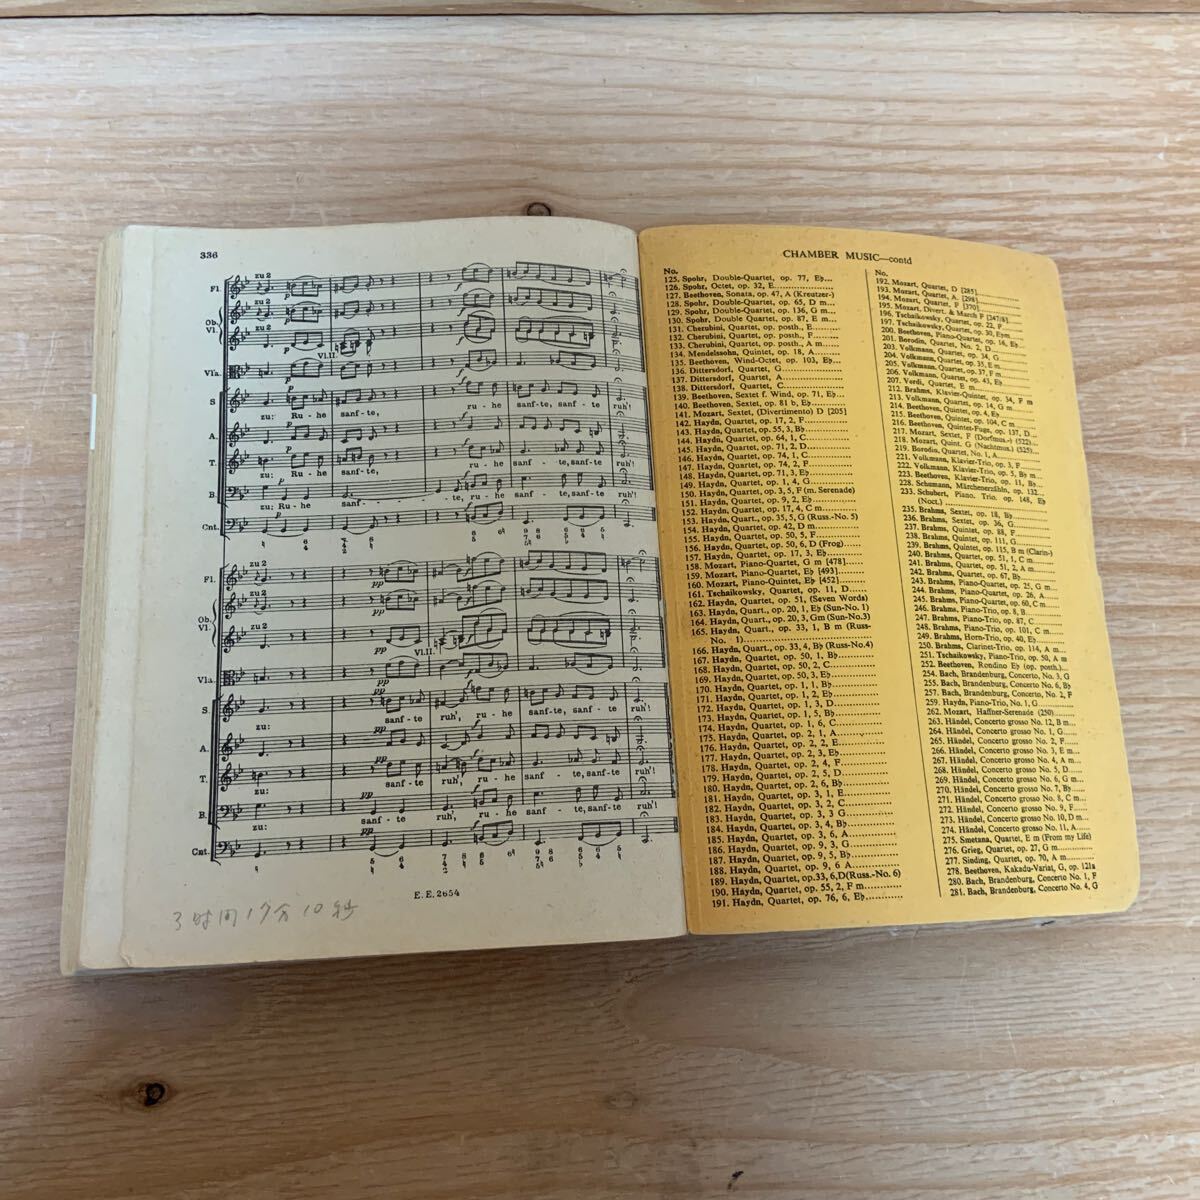 336
zu 2
Fl.
Ob.
Vl.
Vl.II.
Vla.
S
zu: Ru - he sanf - te, ru - he sanf-te, sanf-te ruh'!
A.
T.
zu: Ru - he sanf - te, ru - he sanf-te, sanf-te ruh'!
B.
zu: Ru - he sanf - te, ru - he sanf-te, sanf-te ruh'!
Cnt.
zu 2
Fl.
zu 2
Ob.
Vl.
Vl.II.
Vla.
S.
zu: sanf - te ruh', ru - he sanf - te, sanf-te ruh'!
A.
T.
zu: sanf - te ruh', ru - he sanf - te, sanf-te ruh'!
B.
zu: sanf - te ruh', ru - he sanf - te, sanf-te ruh'!
Cnt.
E. E. 2654
3時間17分10秒
CHAMBER MUSIC—contd
No.
125. Spohr, Double-Quartet, op. 77, E♭...
126. Spohr, Octet, op. 32, E
127. Beethoven, Sonata, op. 47, A (Kreutzer-)
128. Spohr, Double-Quartet, op. 65, D m...
129. Spohr, Double-Quartet, op. 136, G m...
130. Spohr, Double Quartet, op. 87, E m...
131. Cherubini, Quartet, op. posth., E
132. Cherubini, Quartet, op. posth., F
133. Cherubini, Quartet, op. posth., A m
134. Mendelssohn, Quintet, op. 18, A
135. Beethoven, Wind-Octet, op. 103, E♭...
136. Dittersdorf, Quartet, G
137. Dittersdorf, Quartet, A
138. Dittersdorf, Quartet, C
139. Beethoven, Sextet f. Wind, op. 71, E♭...
140. Beethoven, Sextet, op. 81 b, E♭
141. Mozart, Sextet, (Divertimento) D [205]
142. Haydn, Quartet, op. 17, 2, F
143. Haydn, Quartet, op. 55, 3, B♭
144. Haydn, Quartet, op. 64, 1, C
145. Haydn, Quartet, op. 71, 2, D
146. Haydn, Quartet, op. 74, 1, C
147. Haydn, Quartet, op. 74, 2, F
148. Haydn, Quartet, op. 71, 3, E♭
149. Haydn, Quartet, op. 1, 4, G
150. Haydn, Quartet, op. 3, 5, F (m. Serenade)
151. Haydn, Quartet, op. 9, 2, E♭
152. Haydn, Quartet, op. 17, 4, C m
153. Haydn, Quart., op. 35, 5, G (Russ-No. 5)
154. Haydn, Quartet, op. 42, D m
155. Haydn, Quartet, op. 50, 5, F
156. Haydn, Quartet, op. 50, 6, D (Frog)
157. Haydn, Quartet, op. 17, 3, E♭
158. Mozart, Piano-Quartet, G m [478]
159. Mozart, Piano-Quartet, E♭ [493]
160. Mozart, Piano-Quintet, E♭ [452]
161. Tschaikowsky, Quartet, op. 11, D
162. Haydn, Quartet, op. 51, (Seven Words)
163. Haydn, Quart., op. 20, 1, E♭ (Sun-No. 1)
164. Haydn, Quart., op. 20, 3, Gm (Sun-No.3)
165. Haydn, Quart., op. 33, 1, B m (Russ-
No. 1)
166. Haydn, Quart., op. 33, 4, B♭ (Russ-No.4)
167. Haydn, Quartet, op. 50, 1, B♭
168. Haydn, Quartet, op. 50, 2, C
169. Haydn, Quartet, op. 50, 3, E♭
170. Haydn, Quartet, op. 1, 1, B♭
171. Haydn, Quartet, op. 1, 2, E♭
172. Haydn, Quartet, op. 1, 3, D
173. Haydn, Quartet, op. 1, 5, B♭
174. Haydn, Quartet, op. 1, 6, C
175. Haydn, Quartet, op. 2, 1, A
176. Haydn, Quartet, op. 2, 2, E
177. Haydn, Quartet, op. 2, 3, E♭
178. Haydn, Quartet, op. 2, 4, F
179. Haydn, Quartet, op. 2, 5, D
180. Haydn, Quartet, op. 2, 6, B♭
181. Haydn, Quartet, op. 3, 1, E
182. Haydn, Quartet, op. 3, 2, C
183. Haydn, Quartet, op. 3, 3 G
184. Haydn, Quartet, op. 3, 4, B♭
185. Haydn, Quartet, op. 3, 6, A
186. Haydn, Quartet, op. 9, 3, G
187. Haydn, Quartet, op. 9, 5, B♭
188. Haydn, Quartet, op. 9, 6 A
189. Haydn, Quartet, op.33,6,D(Russ.-No. 6)
190. Haydn, Quartet, op. 55, 2, F m
191. Haydn, Quartet, op. 76, 6, E♭
No.
192. Mozart, Quartet, D [285]
193. Mozart, Quartet, A [298]
194. Mozart, Quartet, F [370]
195. Mozart, Divert. & March F [247/8]
196. Tschaikowsky, Quartet, op. 22, F
197. Tschaikowsky, Quartet, op. 30, E♭m
200. Beethoven, Piano-Quartet, op. 16, E♭
201. Borodin, Quartet, No. 2, D
203. Volkmann, Quartet, op. 34, G
204. Volkmann, Quartet, op. 35, E m
205. Volkmann, Quartet, op. 37, F m
206. Volkmann, Quartet, op. 43, E♭
207. Verdi, Quartet, E m
212. Brahms, Klavier-Quintet, op. 34, F m
213. Volkmann, Quartet, op. 14, G m
214. Beethoven, Quintet, op. 4, E♭
215. Beethoven, Quintet, op. 104, C m
216. Beethoven, Quintet-Fuge, op. 137, D
217. Mozart, Sextet, F (Dorfmus.-) (522)
218. Mozart, Quint. G (Nachtmus.) (525)
219. Borodin, Quartet, No. 1, A
221. Volkmann, Klavier-Trio, op. 3, F
222. Volkmann, Klavier-Trio, op. 5, B♭ m
223. Beethoven, Klavier-Trio, op. 11, B♭
228. Schumann, Märchenerzähln, op. 132
233. Schubert, Piano. Trio, op. 148, E♭
(Noct.)
235. Brahms, Sextet, op. 18, B♭
236. Brahms, Sextet, op. 36, G
237. Brahms, Quintet, op. 88, F
238. Brahms, Quintet, op. 111, G
239. Brahms, Quintet, op. 115, B m (Clarin-)
240. Brahms, Quartet, op. 51, 1, C m
241. Brahms, Quartet, op. 51, 2, A m
242. Brahms, Quartet, op. 67, B♭
243. Brahms, Piano-Quartet, op. 25, G m
244. Brahms, Piano-Quartet, op. 26, A
245. Brahms, Piano-Quartet, op. 60, C m
246. Brahms, Piano-Trio, op. 8, B
247. Brahms, Piano-Trio, op. 87, C
248. Brahms, Piano-Trio, op. 101, C m
249. Brahms, Horn-Trio, op. 40, E♭
250. Brahms, Clarinet-Trio, op. 114, A m
251. Tschaikowsky, Piano-Trio, op. 50, A m
252. Beethoven, Rondino E♭ (op. posth.)
254. Bach, Brandenburg, Concerto No. 3, G
255. Bach, Brandenburg, Concerto No. 6, B♭
257. Bach, Brandenburg, Concerto No. 2, F
259. Haydn, Piano-Trio, No. 1, G
262. Mozart, Haffner-Serenade (250)
263. Händel, Concerto grosso No. 12, B m
264. Händel, Concerto grosso No. 1, G
265. Händel, Concerto grosso No. 2, F
266. Händel, Concerto grosso No. 3, E m
267. Händel, Concerto grosso No. 4, A m
268. Händel, Concerto grosso No. 5, D
269. Händel, Concerto grosso No. 6, G m
270. Händel, Concerto grosso No. 7, B♭
271. Händel, Concerto grosso No. 8, C m
272. Händel, Concerto grosso No. 9, F
273. Händel, Concerto grosso No. 10, D m
274. Händel, Concerto grosso No. 11, A
275. Smetana, Quartet, E m (From my Life)
276. Grieg, Quartet, op. 27, G m
277. Sinding, Quartet, op. 70, A m
278. Beethoven, Kakadu-Variat, G, op. 121a
280. Bach, Brandenburg, Concerto No. 1, F
281. Bach, Brandenburg, Concerto No. 4, G